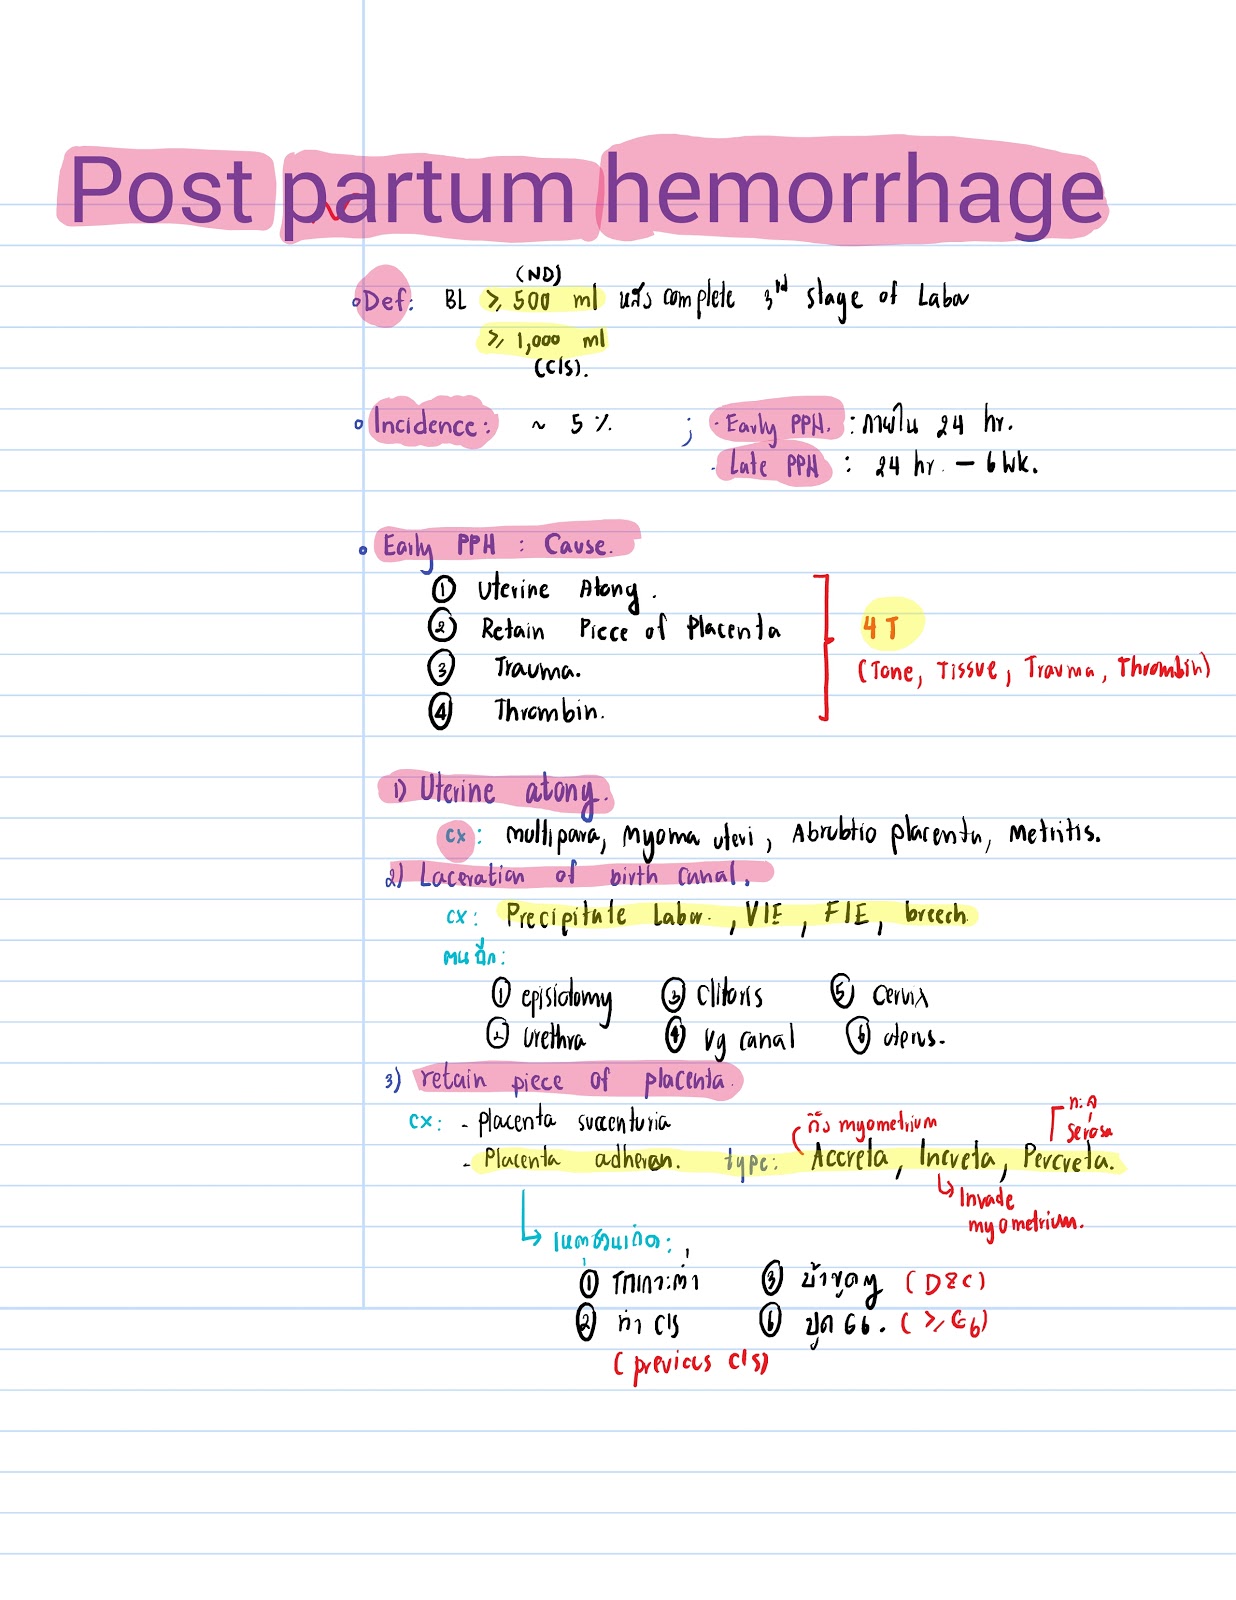 Post partum hemorrhage
(ND)
Def: BL ≥ 500 ml หลัง complete 3rd stage of Labor
≥ 1,000 ml
(C/S).
Incidence: ~ 5 % ; - Early PPH. : ภายใน 24 hr.
- Late PPH : 24 hr. – 6 wk.
Early PPH : Cause.
① Uterine Atony.
② Retain Piece of Placenta
③ Trauma.
④ Thrombin.
4 T
(Tone, Tissue, Trauma, Thrombin)
1) Uterine atony.
cx: multipara, Myoma uteri, Abrubtio placenta, Metritis.
2) Laceration of birth canal.
cx: Precipitate Labor. , V/E , F/E, breech.
① episiotomy ③ Clitoris ⑤ Cervix
② Urethra ④ Vg canal ⑥ uterus.
3) retain piece of placenta.
cx: - placenta succenturia
ถึง myometrium
serosa
- Placenta adheren. type: Accreta, Increta, Percreta.
↳ Invade
myometrium.
① รกเกาะต่ำ ③ ขูดมดลูก (D&C)
② ทำ C/S ⑥ G6. (≥ G6)
(previous C/S)